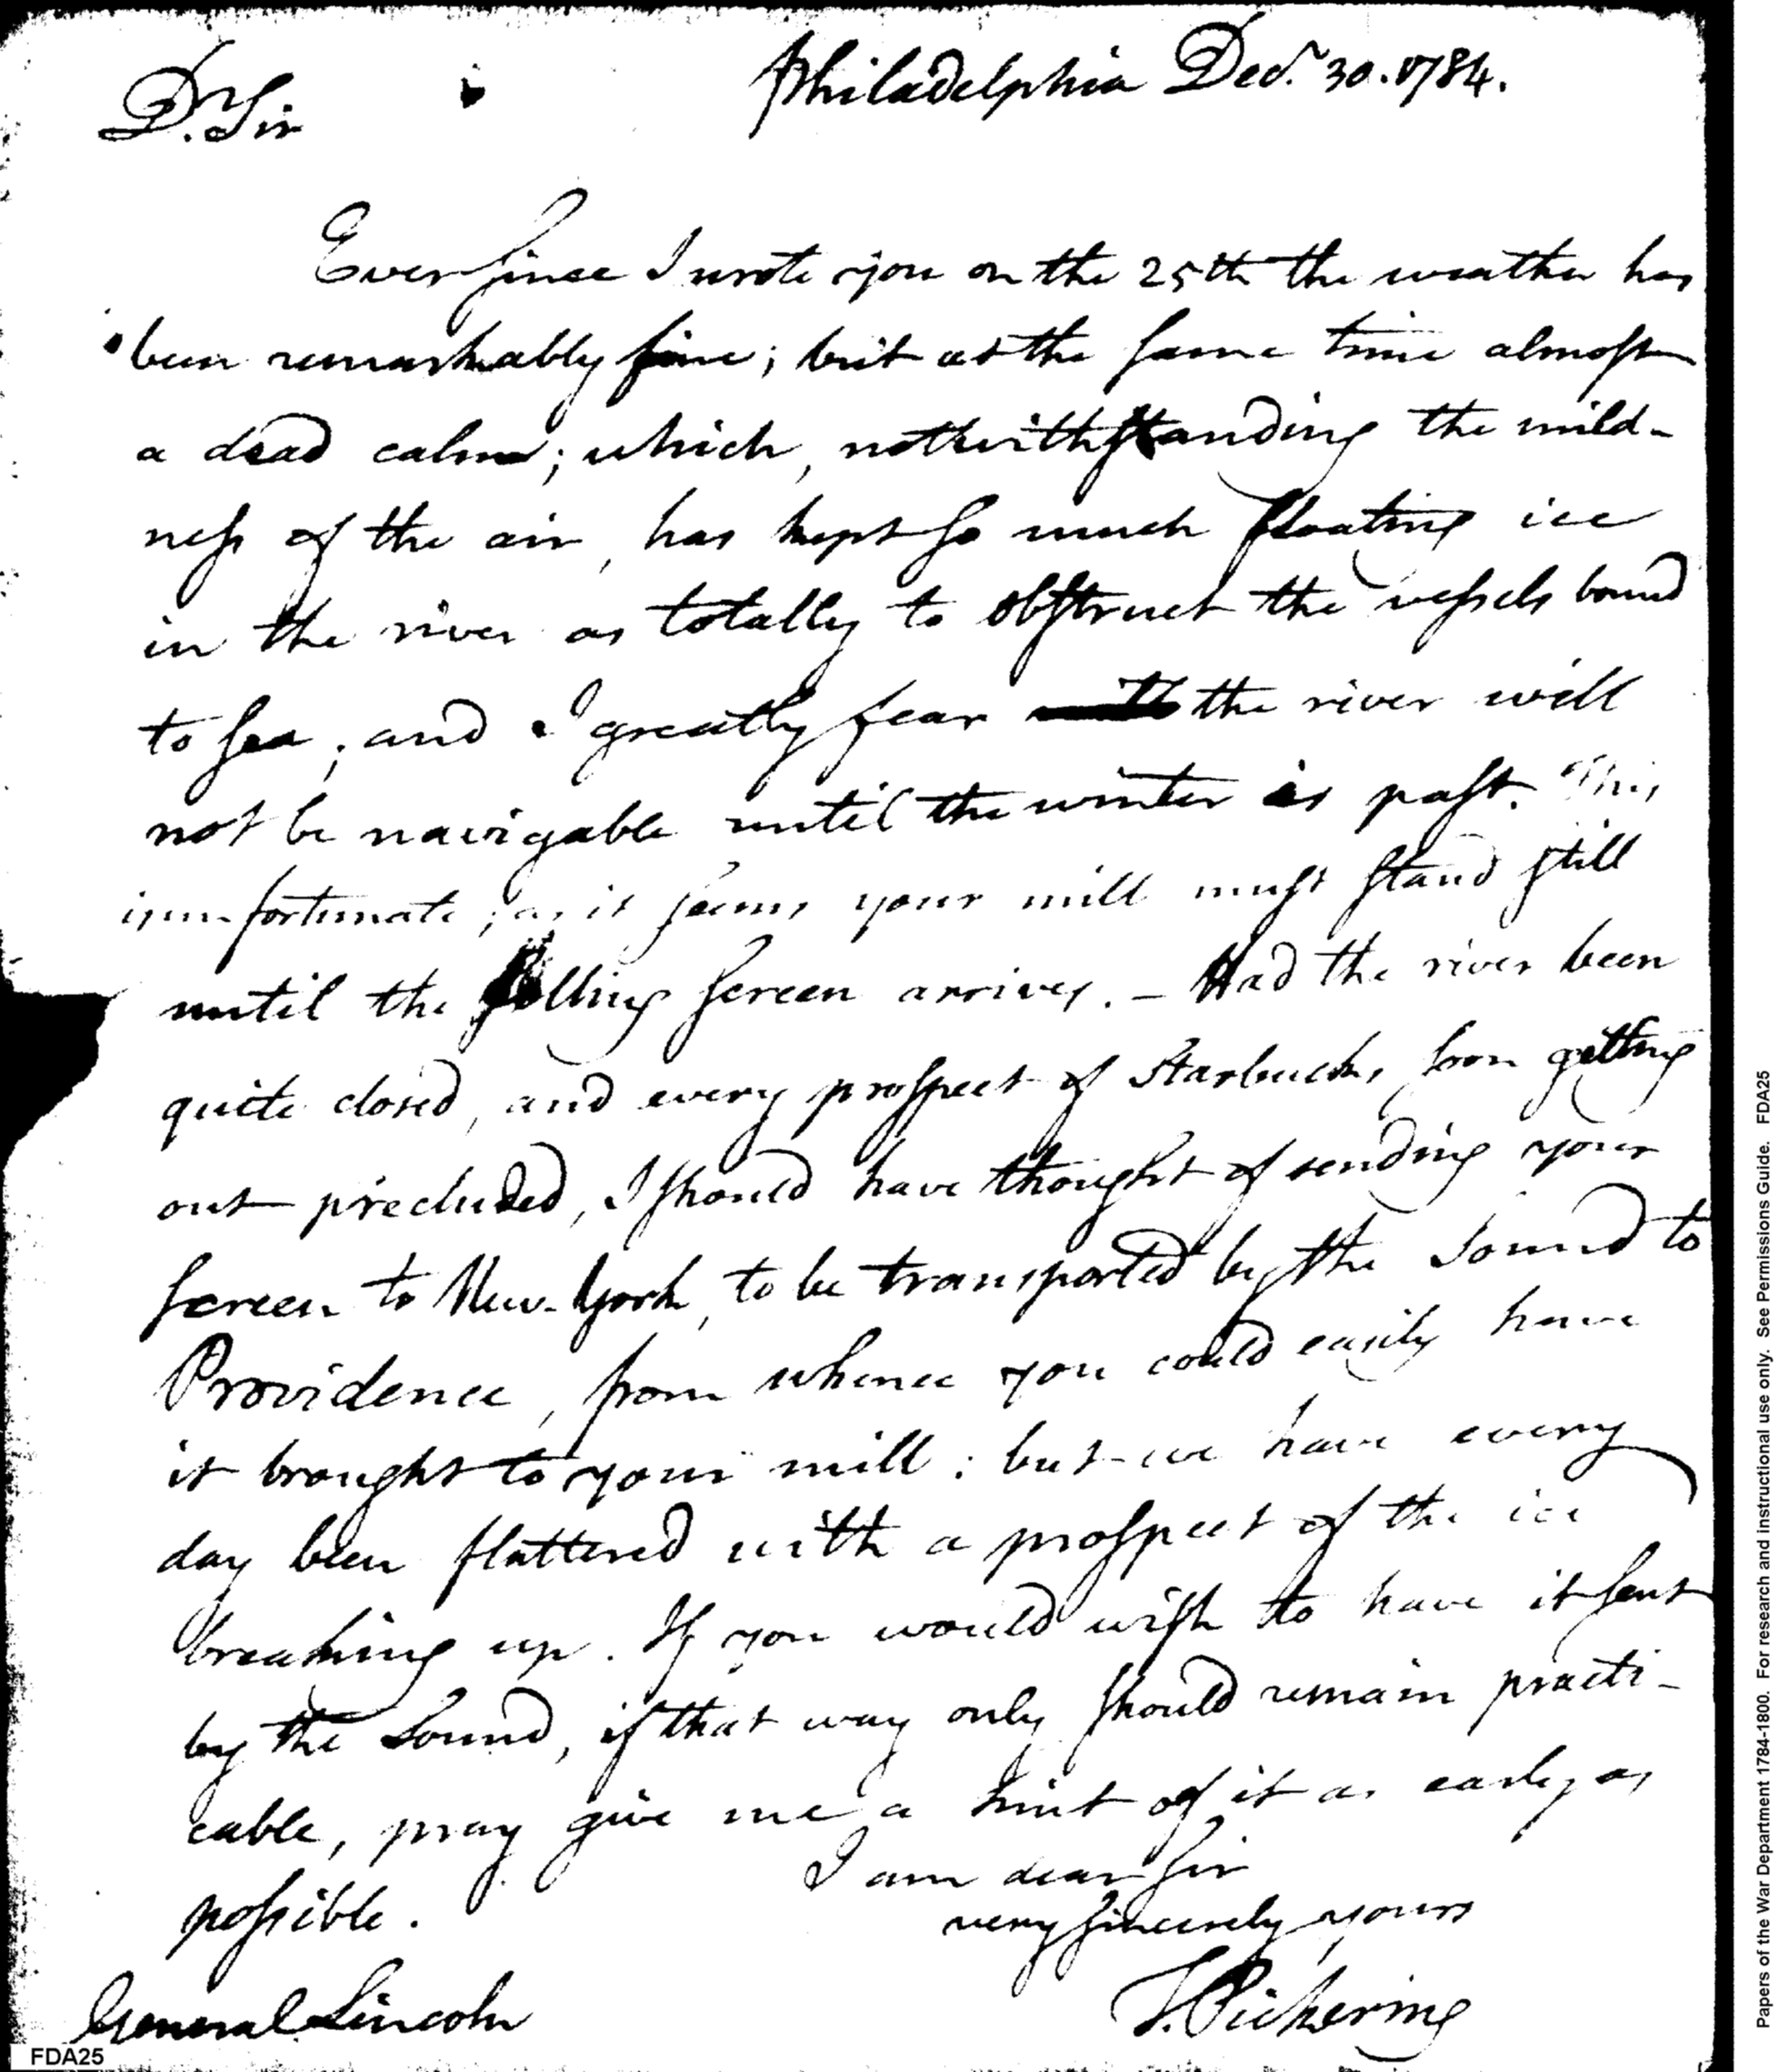 Philadelphia Decr. 30. 1784.
Dr. Sir
Ever since I wrote you on the 25th the weather has
been remarkably fine; but at the same time almost
a dead calm; which, notwithstanding the mild-
ness of the air, has kept so much floating ice
in the river as totally to obstruct the vessels bound
to sea; and I greatly fear the river will
not be navigable until the winter is past. This
is unfortunate; as it seems your mill must stand still
until the screen arrives. - Had the river been
quite closed, and every prospect of Starbuck's soon getting
out precluded, I should have thought of sending your
screen to New-York, to be transported by the Sound to
Providence, from whence you could easily have
it brought to your mill: but we have every
day been flattered with a prospect of the ice
breaking up. If you would wish to have it sent
by the Sound, if that way only should remain practi-
cable, pray give me a hint of it as early as
possible.
I am dear sir
very sincerely yours
T. Pickering
General Lincoln
FDA25
Papers of the War Department 1784-1800. For research and instructional use only. See Permissions Guide. FDA25